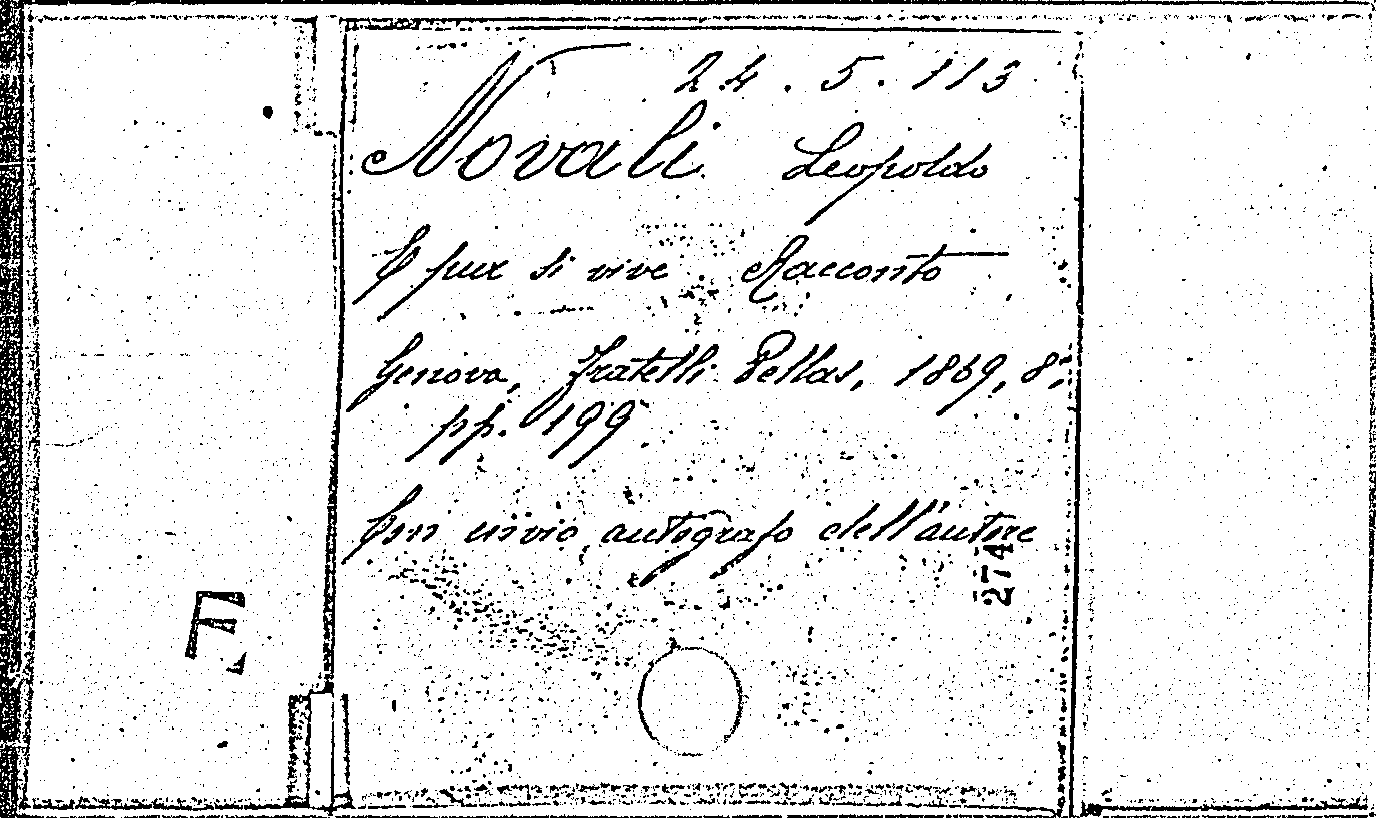 24.5.113
Novali Leopoldo
E pur si vive. Racconto
Genova, Fratelli Pellas, 1869, 8°,
pp. 199
Con invio autografo dell'autore
274